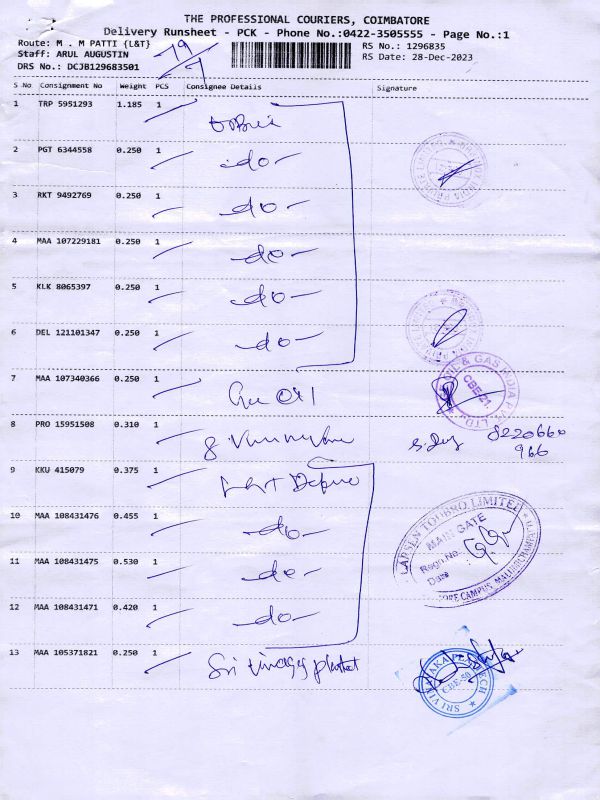 THE PROFESSIONAL COURIERS, COIMBATORE
Delivery Runsheet - PCK - Phone No.:0422-3505555 - Page No.:1
Route: M . M PATTI {L&T}
RS No.: 1296835
Staff: ARUL AUGUSTIN
RS Date: 28-Dec-2023
DRS No.: DCJB129683501
S No Consignment No Weight PCS Consignee Details Signature
1 TRP 5951293 1.185 1
2 PGT 6344558 0.250 1 -do-
3 RKT 9492769 0.250 1 -do-
4 MAA 107229181 0.250 1 -do-
5 KLK 8065397 0.250 1 -do-
6 DEL 121101347 0.250 1 -do-
7 MAA 107340366 0.250 1 OIL & GAS INDIA PVT. LTD. CBE-21.
8 PRO 15951508 0.310 1 8220660
966
9 KKU 415079 0.375 1 L&T Defence
10 MAA 108431476 0.455 1 -do-
11 MAA 108431475 0.530 1 -do-
12 MAA 108431471 0.420 1 -do-
LARSEN TOUBRO LIMITED
MAIN GATE
Regn.No
Date
13 MAA 105371821 0.250 1 Sri
SRI VINAYAKA PENTECH
CBE-50